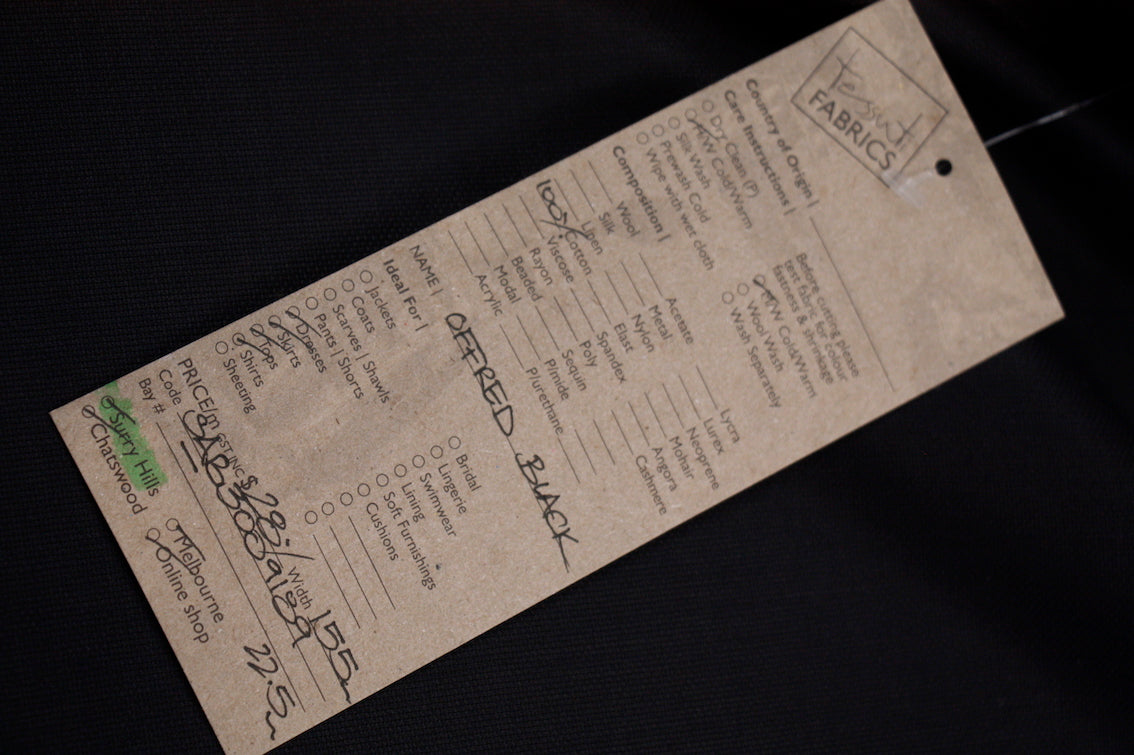 Tessuti
FABRICS
Country of Origin |
Care Instructions |
Dry Clean (P)
H/W Cold/Warm
Silk Wash
Prewash Cold
Wipe with wet cloth
Before cutting please
test fabric for colour
fastness & shrinkage
H/W Cold/Warm
Wool Wash
Wash Separately
Composition |
Wool
Silk
Linen
100% Cotton
Viscose
Rayon
Beaded
Modal
Acrylic
Acetate
Metal
Nylon
Elast
Spandex
Poly
Sequin
P/mide
P/urethane
Lycra
Lurex
Neoprene
Mohair
Angora
Cashmere
NAME | OFFRED BLACK
Ideal For |
Jackets
Coats
Scarves | Shawls
Pants | Shorts
Dresses
Skirts
Tops
Shirts
Sheeting
Bridal
Lingerie
Swimwear
Lining
Soft Furnishings
Cushions
PRICE/m GST INC $ 29.- Width 155
Code
Bay # 22.5m
Surry Hills
Chatswood
Melbourne
Online shop